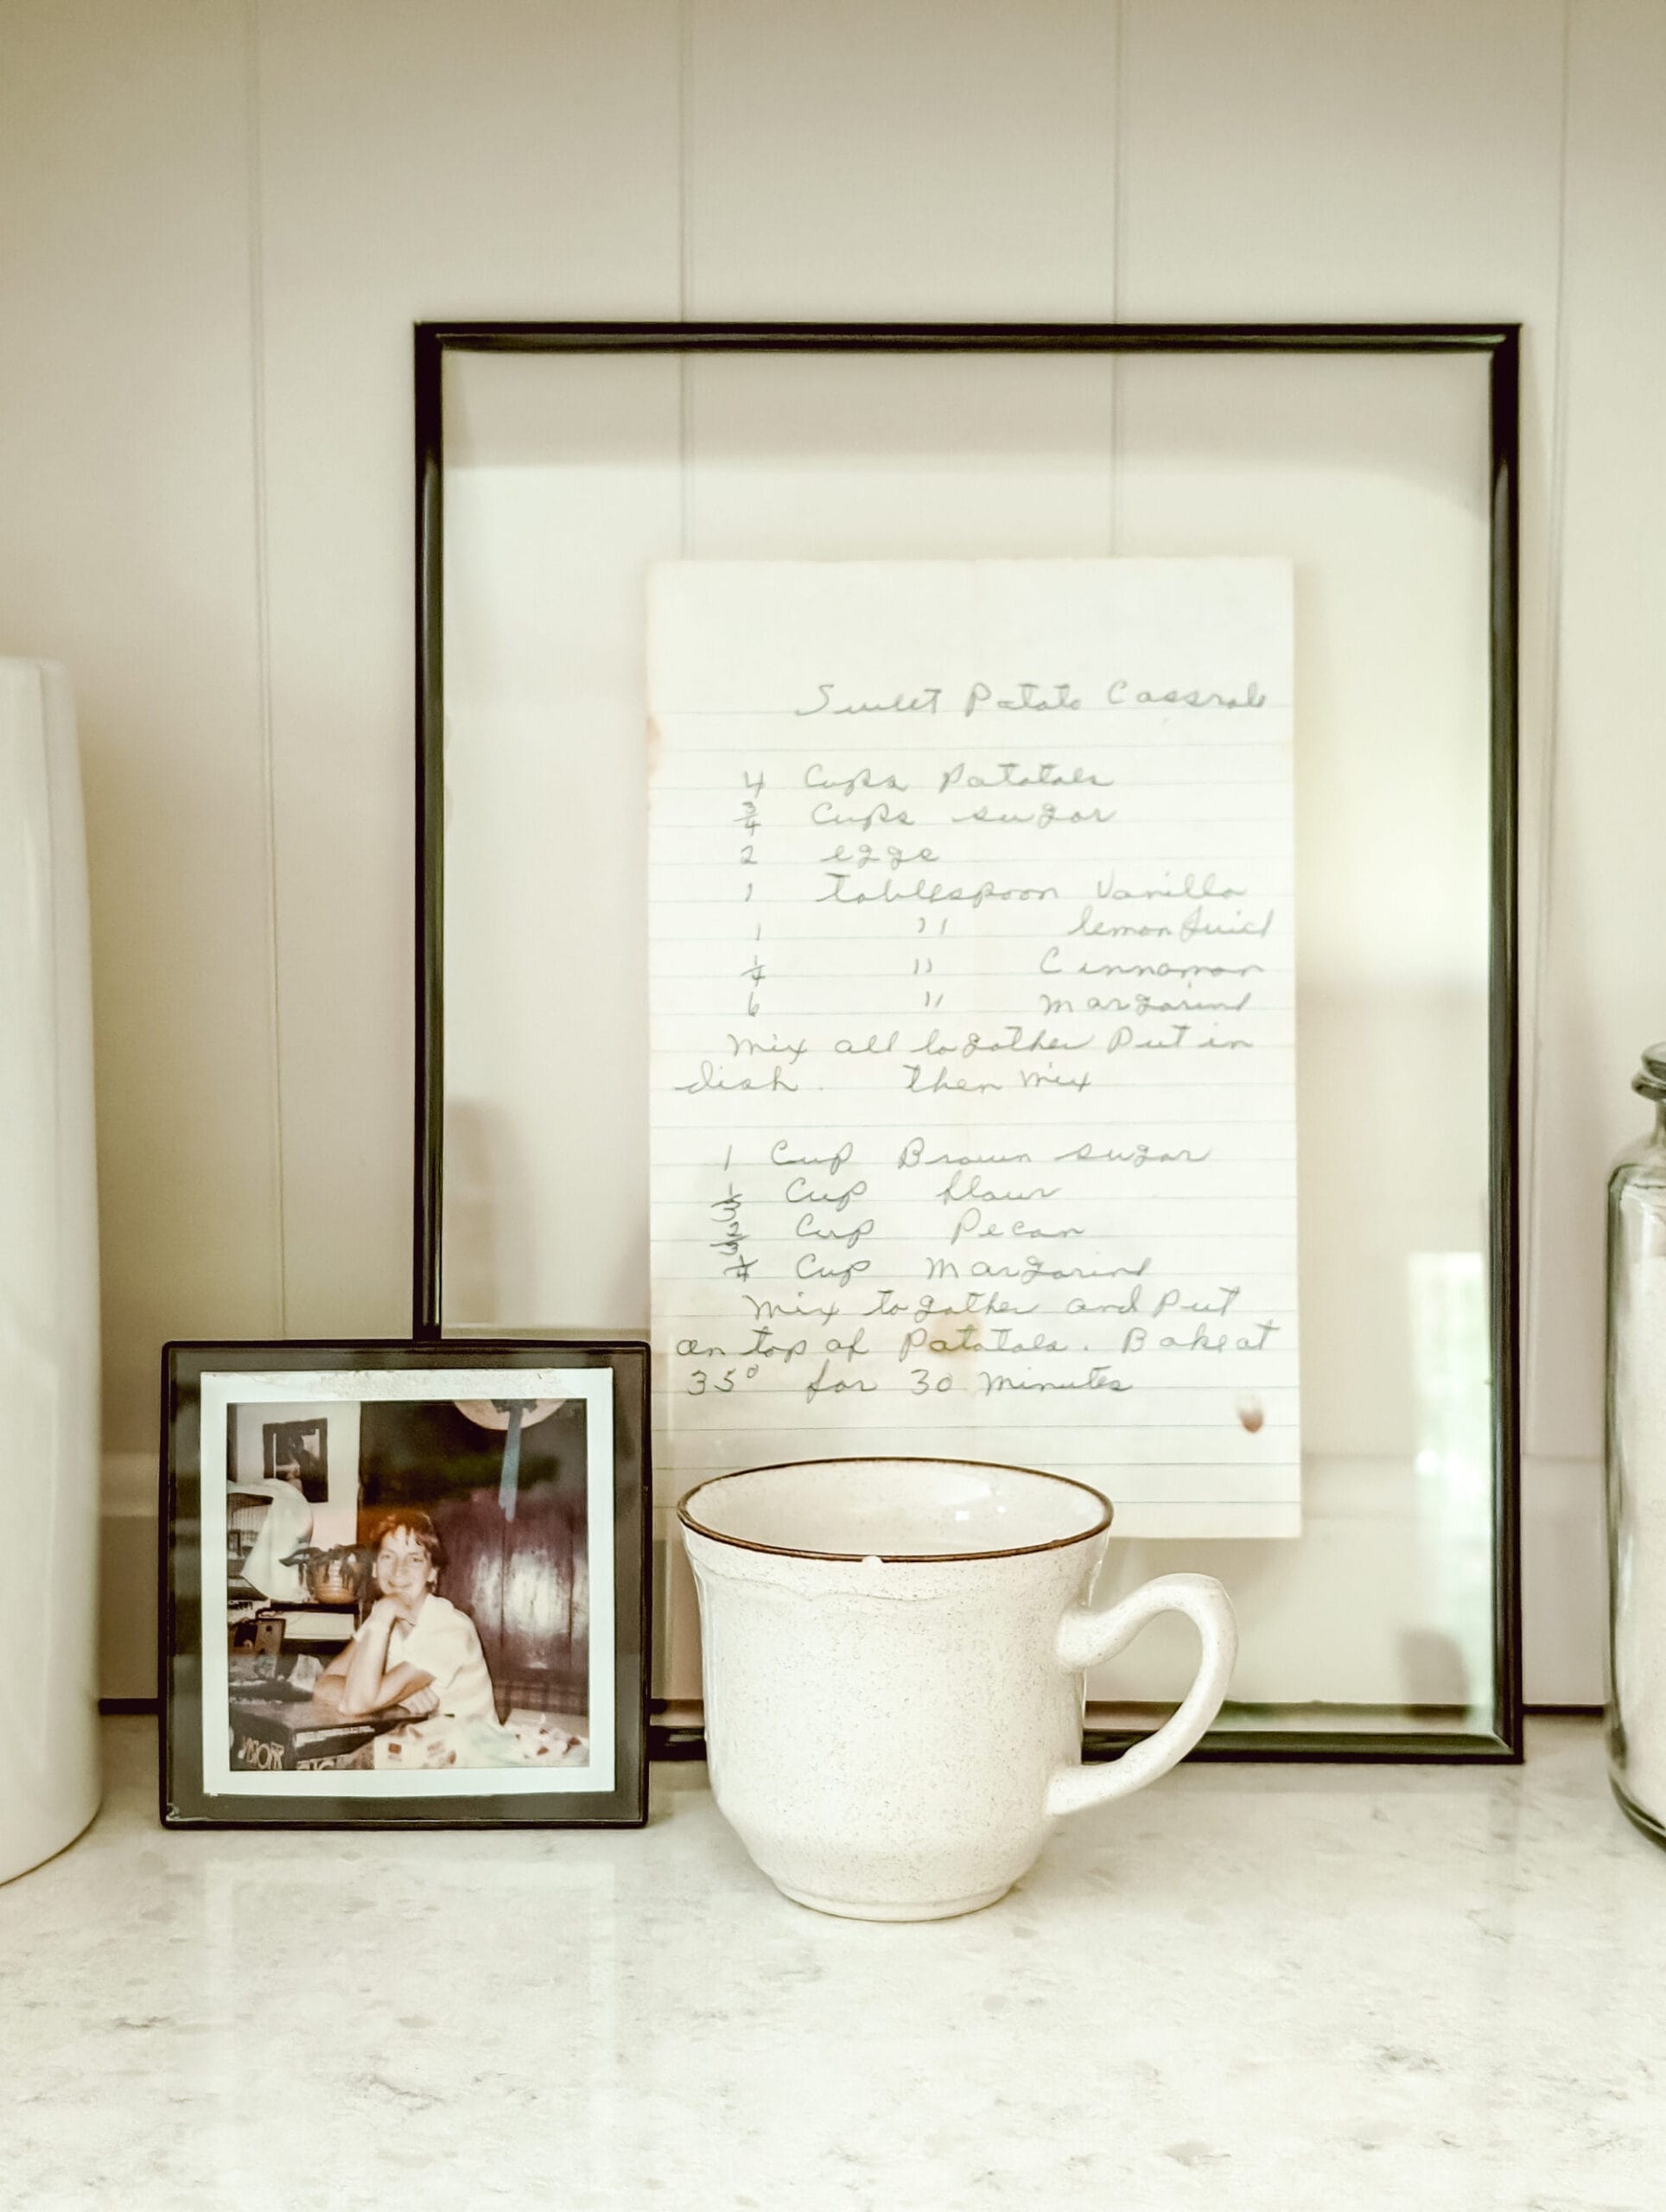 Sweet Potato Cassrole
4 Cups Patatoes
3/4 Cups sugar
2 eggs
1 tablespoon Vanilla
1 " lemon juice
1/4 " Cinnamon
6 " margarine
Mix all togather Put in
dish. then mix
1 Cup Brown sugar
Cup flour
Cup Pecan
Cup Margarine
Mix togather and Put
on top of Patatoes. Bake at
35° for 30 Minutes